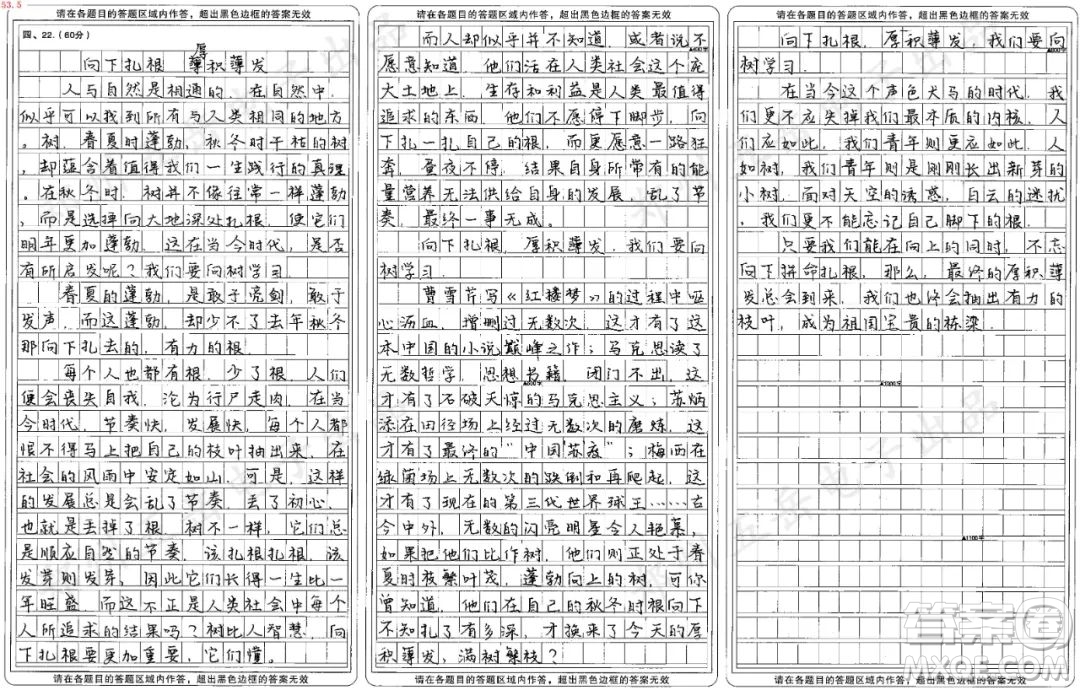 53.5
请在各题目的答题区域内作答，超出黑色边框的答案无效
四、22.（60分）
厚
向下扎根 薄积薄发
人与自然是相通的。在自然中，
似乎可以找到所有与人类相同的地方
。树，春夏时蓬勃，秋冬时干枯的树
，却蕴含着值得我们一生践行的真理
。在秋冬时，树并不像往常一样蓬勃
，而是选择向大地深处扎根，使它们
明年更加蓬勃。这在当今时代，是否
有所启发呢？我们要向树学习。
春夏的蓬勃，是敢于亮剑，敢于
发声。而这蓬勃，却少不了去年秋冬
那向下扎去的，有力的根。
每个人也都有根，少了根，人们
便会丧失自我，沦为行尸走肉。在当
今时代，节奏快，发展快，每个人都
恨不得马上把自己的枝叶抽出来，在
社会的风雨中安定如山。可是，这样
的发展总是会乱了节奏，丢了初心，
也就是丢掉了根。树不一样，它们总
是顺应自然的节奏，该扎根扎根，该
发芽则发芽，因此它们长得一年比一
年旺盛。而这不正是人类社会中每个
人所追求的结果吗？树比人智慧，向
下扎根要更加重要，它们懂。
请在各题目的答题区域内作答，超出黑色边框的答案无效
请在各题目的答题区域内作答，超出黑色边框的答案无效
而人却似乎并不知道，或者说不
愿意知道。他们活在人类社会这个庞
大土地上，生存和利益是人类最值得
追求的东西，他们不愿停下脚步，向
下扎一扎自己的根，而更愿意一路狂
奔，昼夜不停，结果自身所常有的能
量营养无法供给自身的发展，乱了节
奏，最终一事无成。
向下扎根，厚积薄发，我们要向
树学习。
曹雪芹写《红楼梦》的过程中呕
心沥血，增删过无数次，这才有了这
本中国的小说巅峰之作；马克思读了
无数哲学，思想书籍，闭门不出，这
▲600字
才有了石破天惊的马克思主义；苏炳
添在田径场上经过无数次的磨炼，这
才有了最终的“中国苏夜”；梅西在
绿茵场上无数次的跌倒和再爬起，这
才有了现在的第三代世界球王……古
今中外，无数的闪亮明星令人艳慕，
如果把他们比作树，他们则正处于春
夏时枝繁叶茂，蓬勃向上的树，可你
曾知道，他们在自己的秋冬时根向下
不知扎了有多深，才换来了今天的厚
积薄发，满树繁枝？
请在各题目的答题区域内作答，超出黑色边框的答案无效
请在各题目的答题区域内作答，超出黑色边框的答案无效
向下扎根，厚积薄发，我们要向
树学习。
在当今这个声色犬马的时代，我
们更不应失掉我们最本质的内核，人
们应如此，我们青年则更应如此。人
如树，我们青年则是刚刚长出新芽的
小树，面对天空的诱惑，白云的迷扰
，我们更不能忘记自己脚下的根。
只要我们能在向上的同时，不忘
向下拼命扎根，那么，最终的厚积薄
发总会到来，我们也终会抽出有力的
枝叶，成为祖国宝贵的栋梁。
▲1000字
▲1100字
请在各题目的答题区域内作答，超出黑色边框的答案无效
答案圈
MXQE.COM